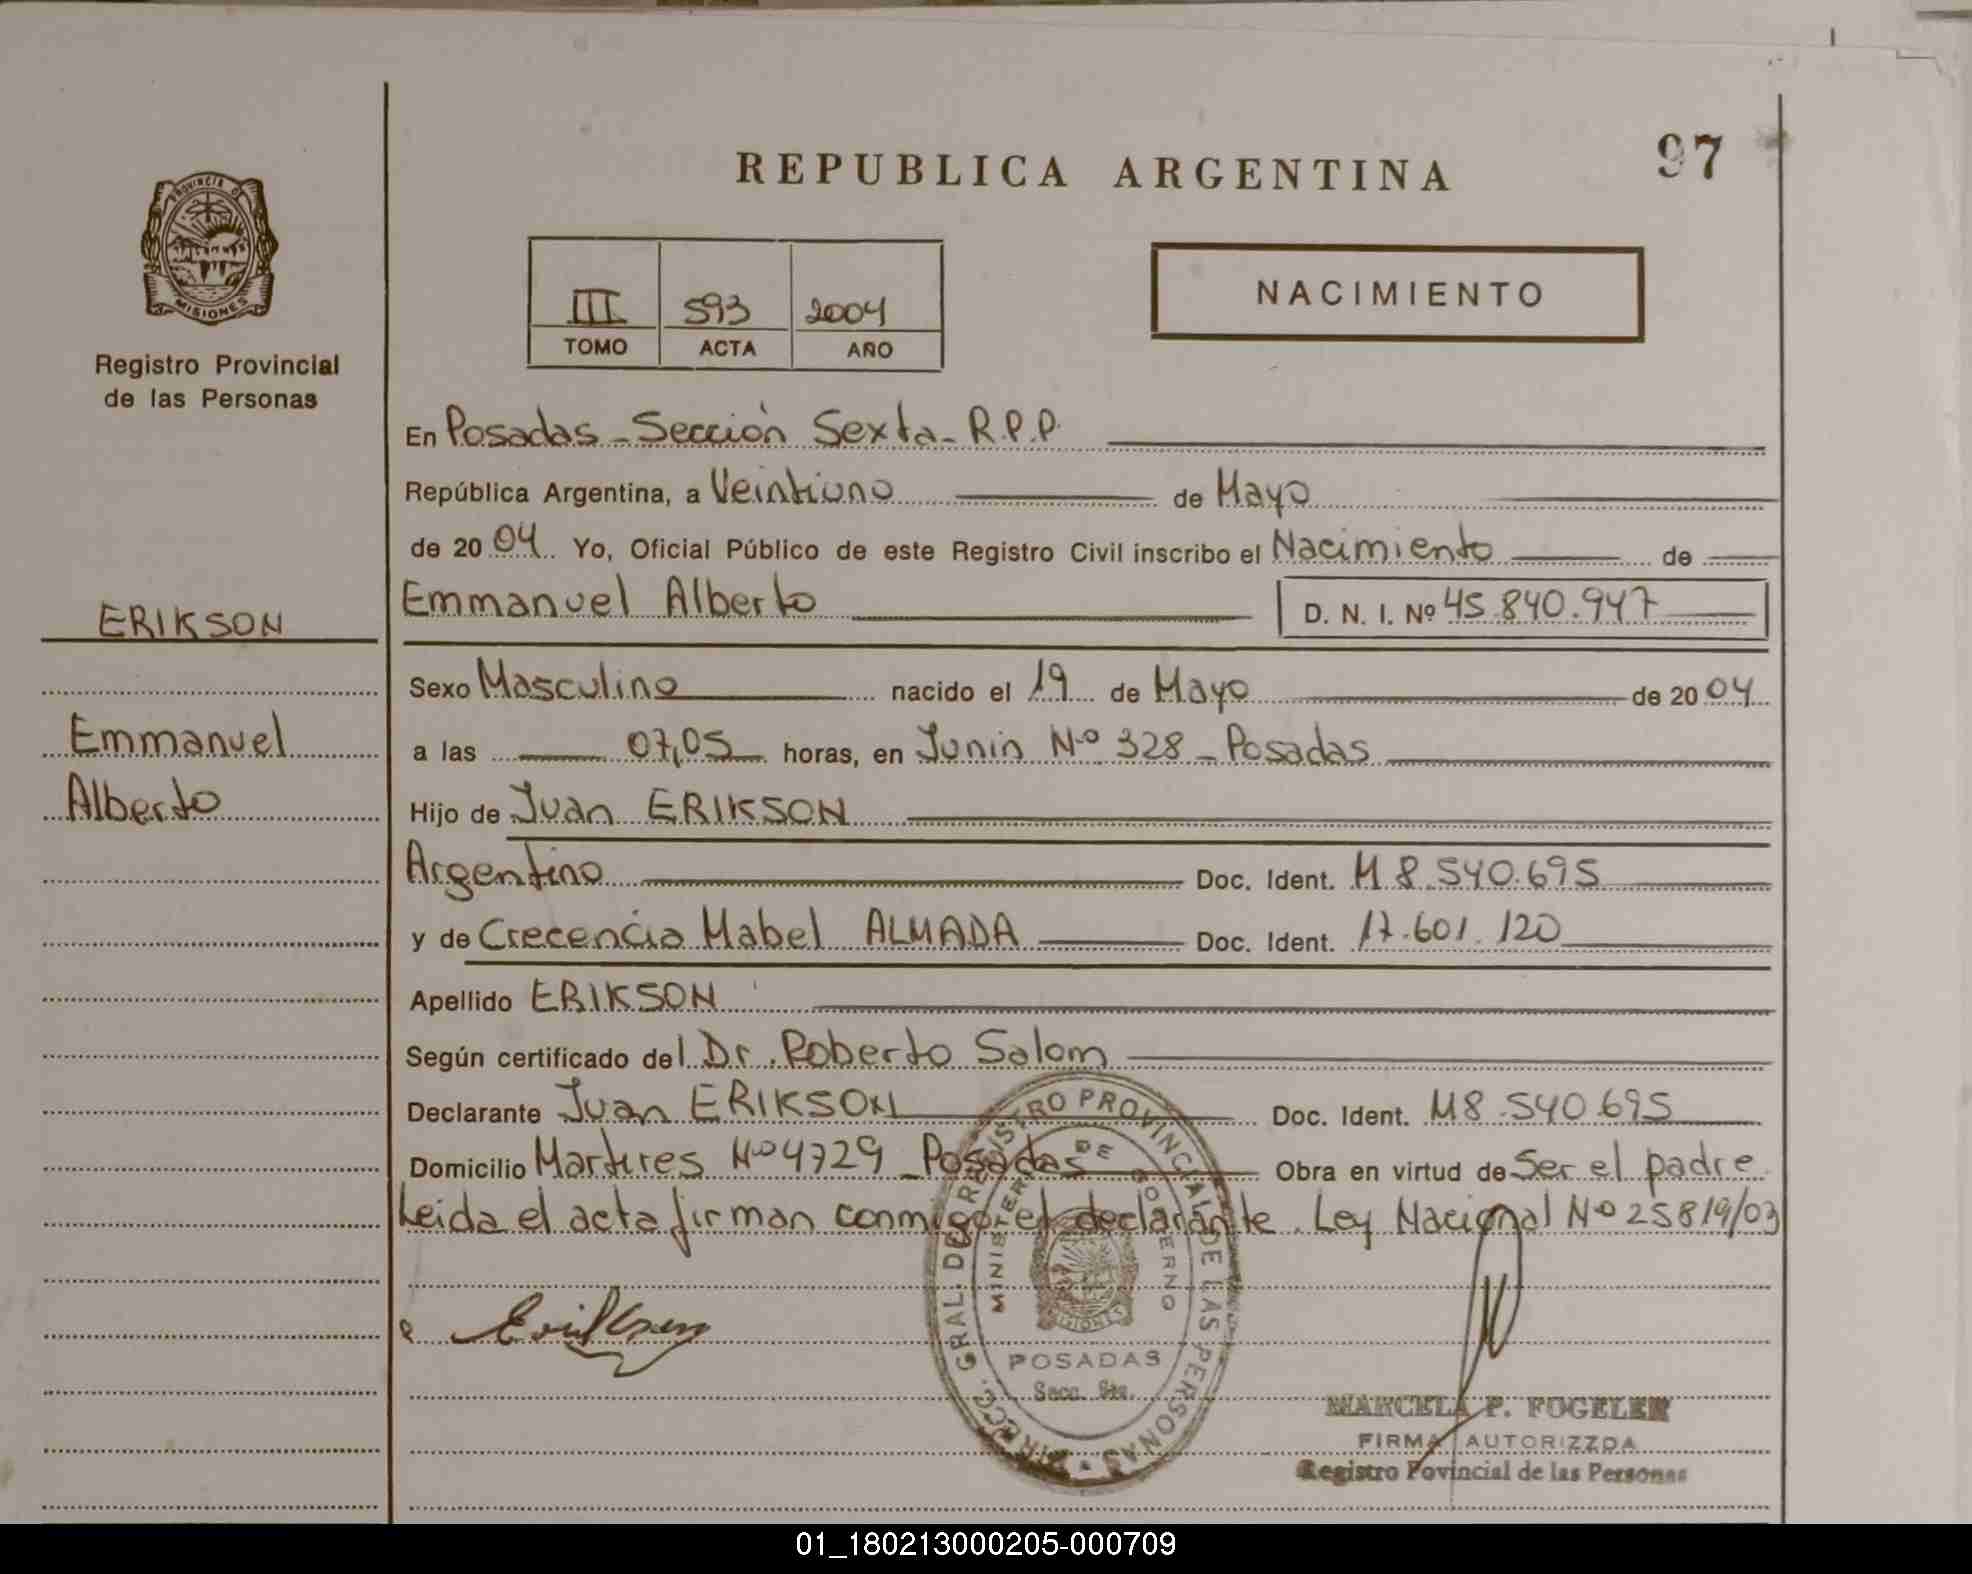 PROVINCIA DE
MISIONES
Registro Provincial
de las Personas
ERIKSON
Emmanuel
Alberto
REPUBLICA ARGENTINA
97
III 593 2004
TOMO ACTA AÑO
NACIMIENTO
En Posadas - Sección Sexta - R.P.P.
República Argentina, a Veintiuno de Mayo
de 2004. Yo, Oficial Público de este Registro Civil inscribo el Nacimiento de
Emmanuel Alberto D. N. I. Nº 45.840.947
Sexo Masculino nacido el 19 de Mayo de 2004
a las 07,05 horas, en Junin Nº 328 - Posadas
Hijo de Juan ERIKSON
Argentino Doc. Ident. M 8.540.695
y de Crecencia Mabel ALMADA Doc. Ident. 17.601.120
Apellido ERIKSON
Según certificado del Dr. Roberto Salom
Declarante Juan ERIKSON Doc. Ident. M8.540.695
Domicilio Martires Nº 4729 - Posadas Obra en virtud de Ser el padre
Leida el acta firman conmigo el declarante. Ley Nacional Nº 25819/03
DIRECC. GRAL. DE REGISTRO PROVINCIAL DE LAS PERSONAS
MINISTERIO DE GOBIERNO
MISIONES
POSADAS
Secc. 6ta.
Erikson
MARCELA P. FOGELER
FIRMA AUTORIZZDA
Registro Povincial de las Personas
01_180213000205-000709